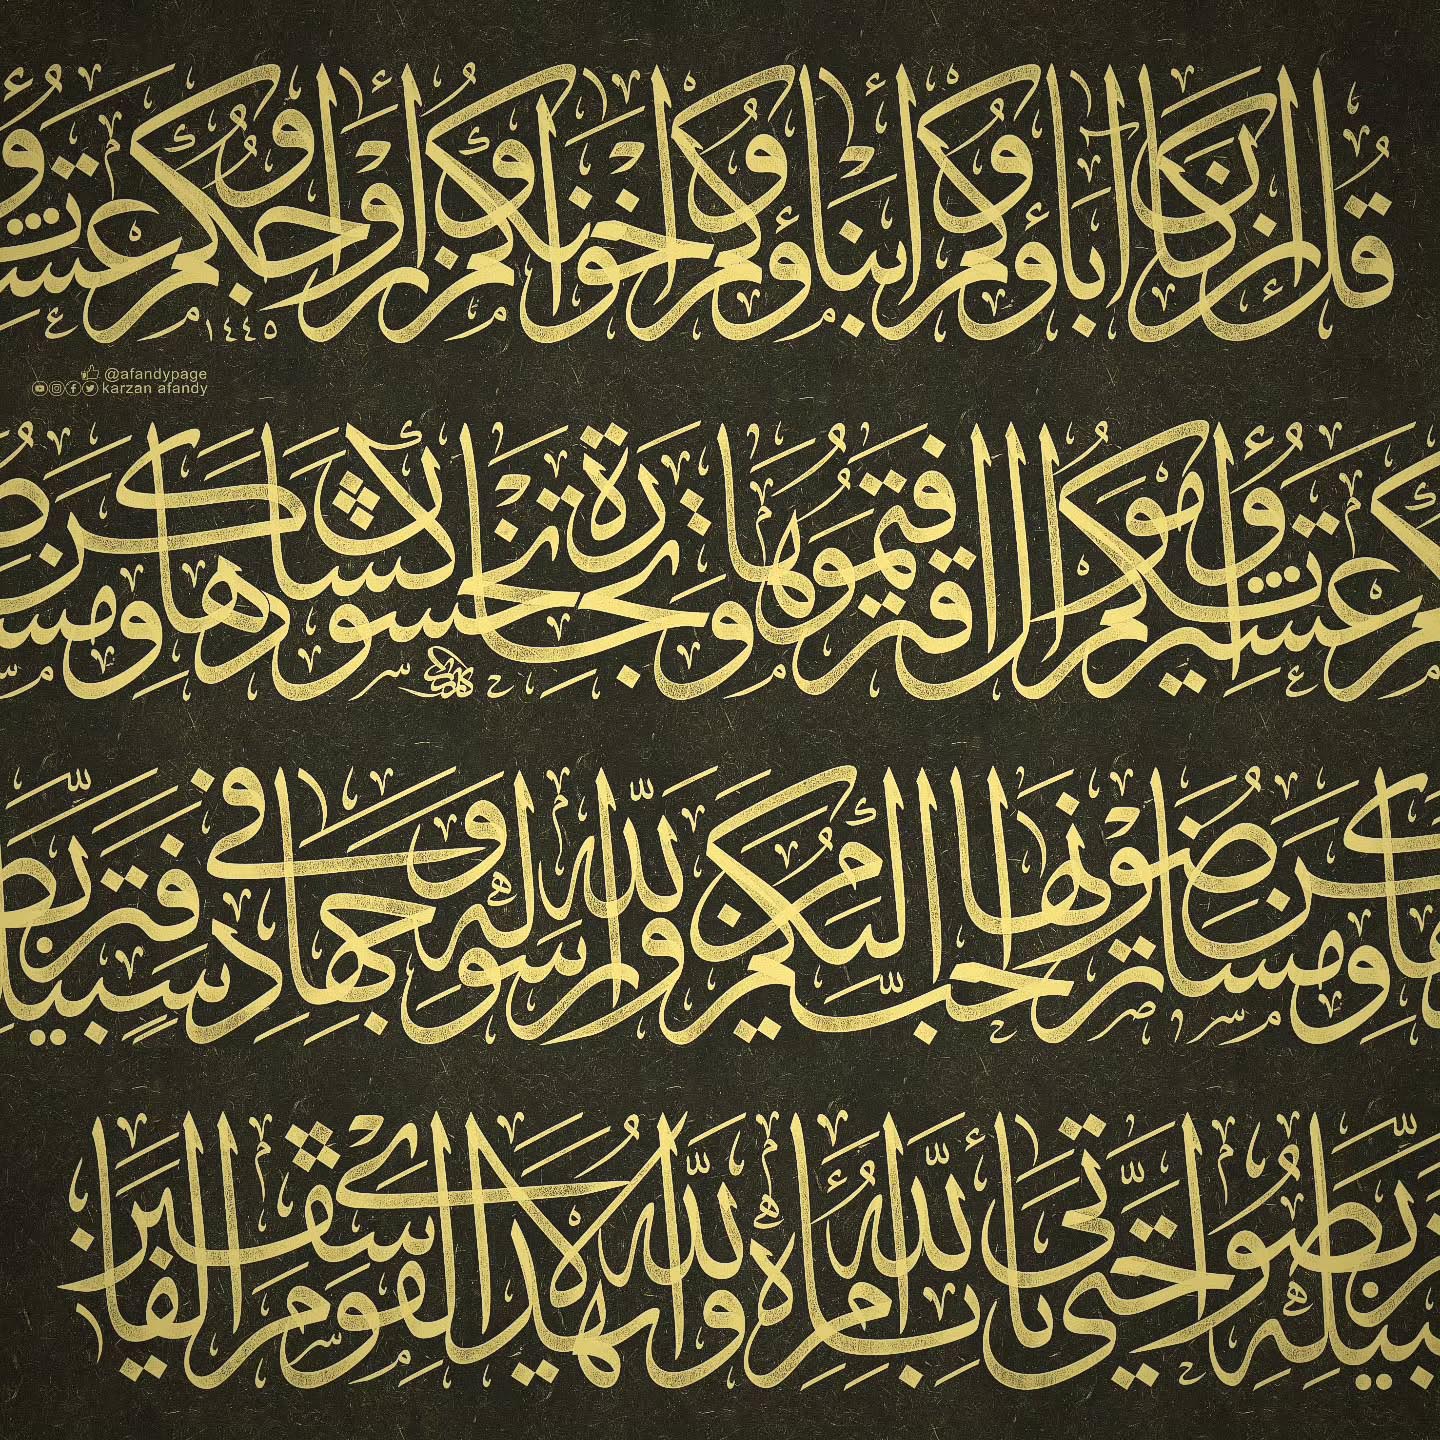 قُلْ إِنْ كَانَ آبَاؤُكُمْ وَأَبْنَاؤُكُمْ وَإِخْوَانُكُمْ وَأَزْوَاجُكُمْ وَعَشِيرَتُكُمْ
١٤٤٥
@afandypage
karzan afandy
وَعَشِيرَتُكُمْ وَأَمْوَالٌ اقْتَرَفْتُمُوهَا وَتِجَارَةٌ تَخْشَوْنَ كَسَادَهَا وَمَسَاكِنُ
وَمَسَاكِنُ تَرْضَوْنَهَا أَحَبَّ إِلَيْكُمْ مِنَ اللَّهِ وَرَسُولِهِ وَجِهَادٍ فِي سَبِيلِهِ فَتَرَبَّصُوا
سَبِيلِهِ فَتَرَبَّصُوا حَتَّى يَأْتِيَ اللَّهُ بِأَمْرِهِ وَاللَّهُ لَا يَهْدِي الْقَوْمَ الْفَاسِقِينَ